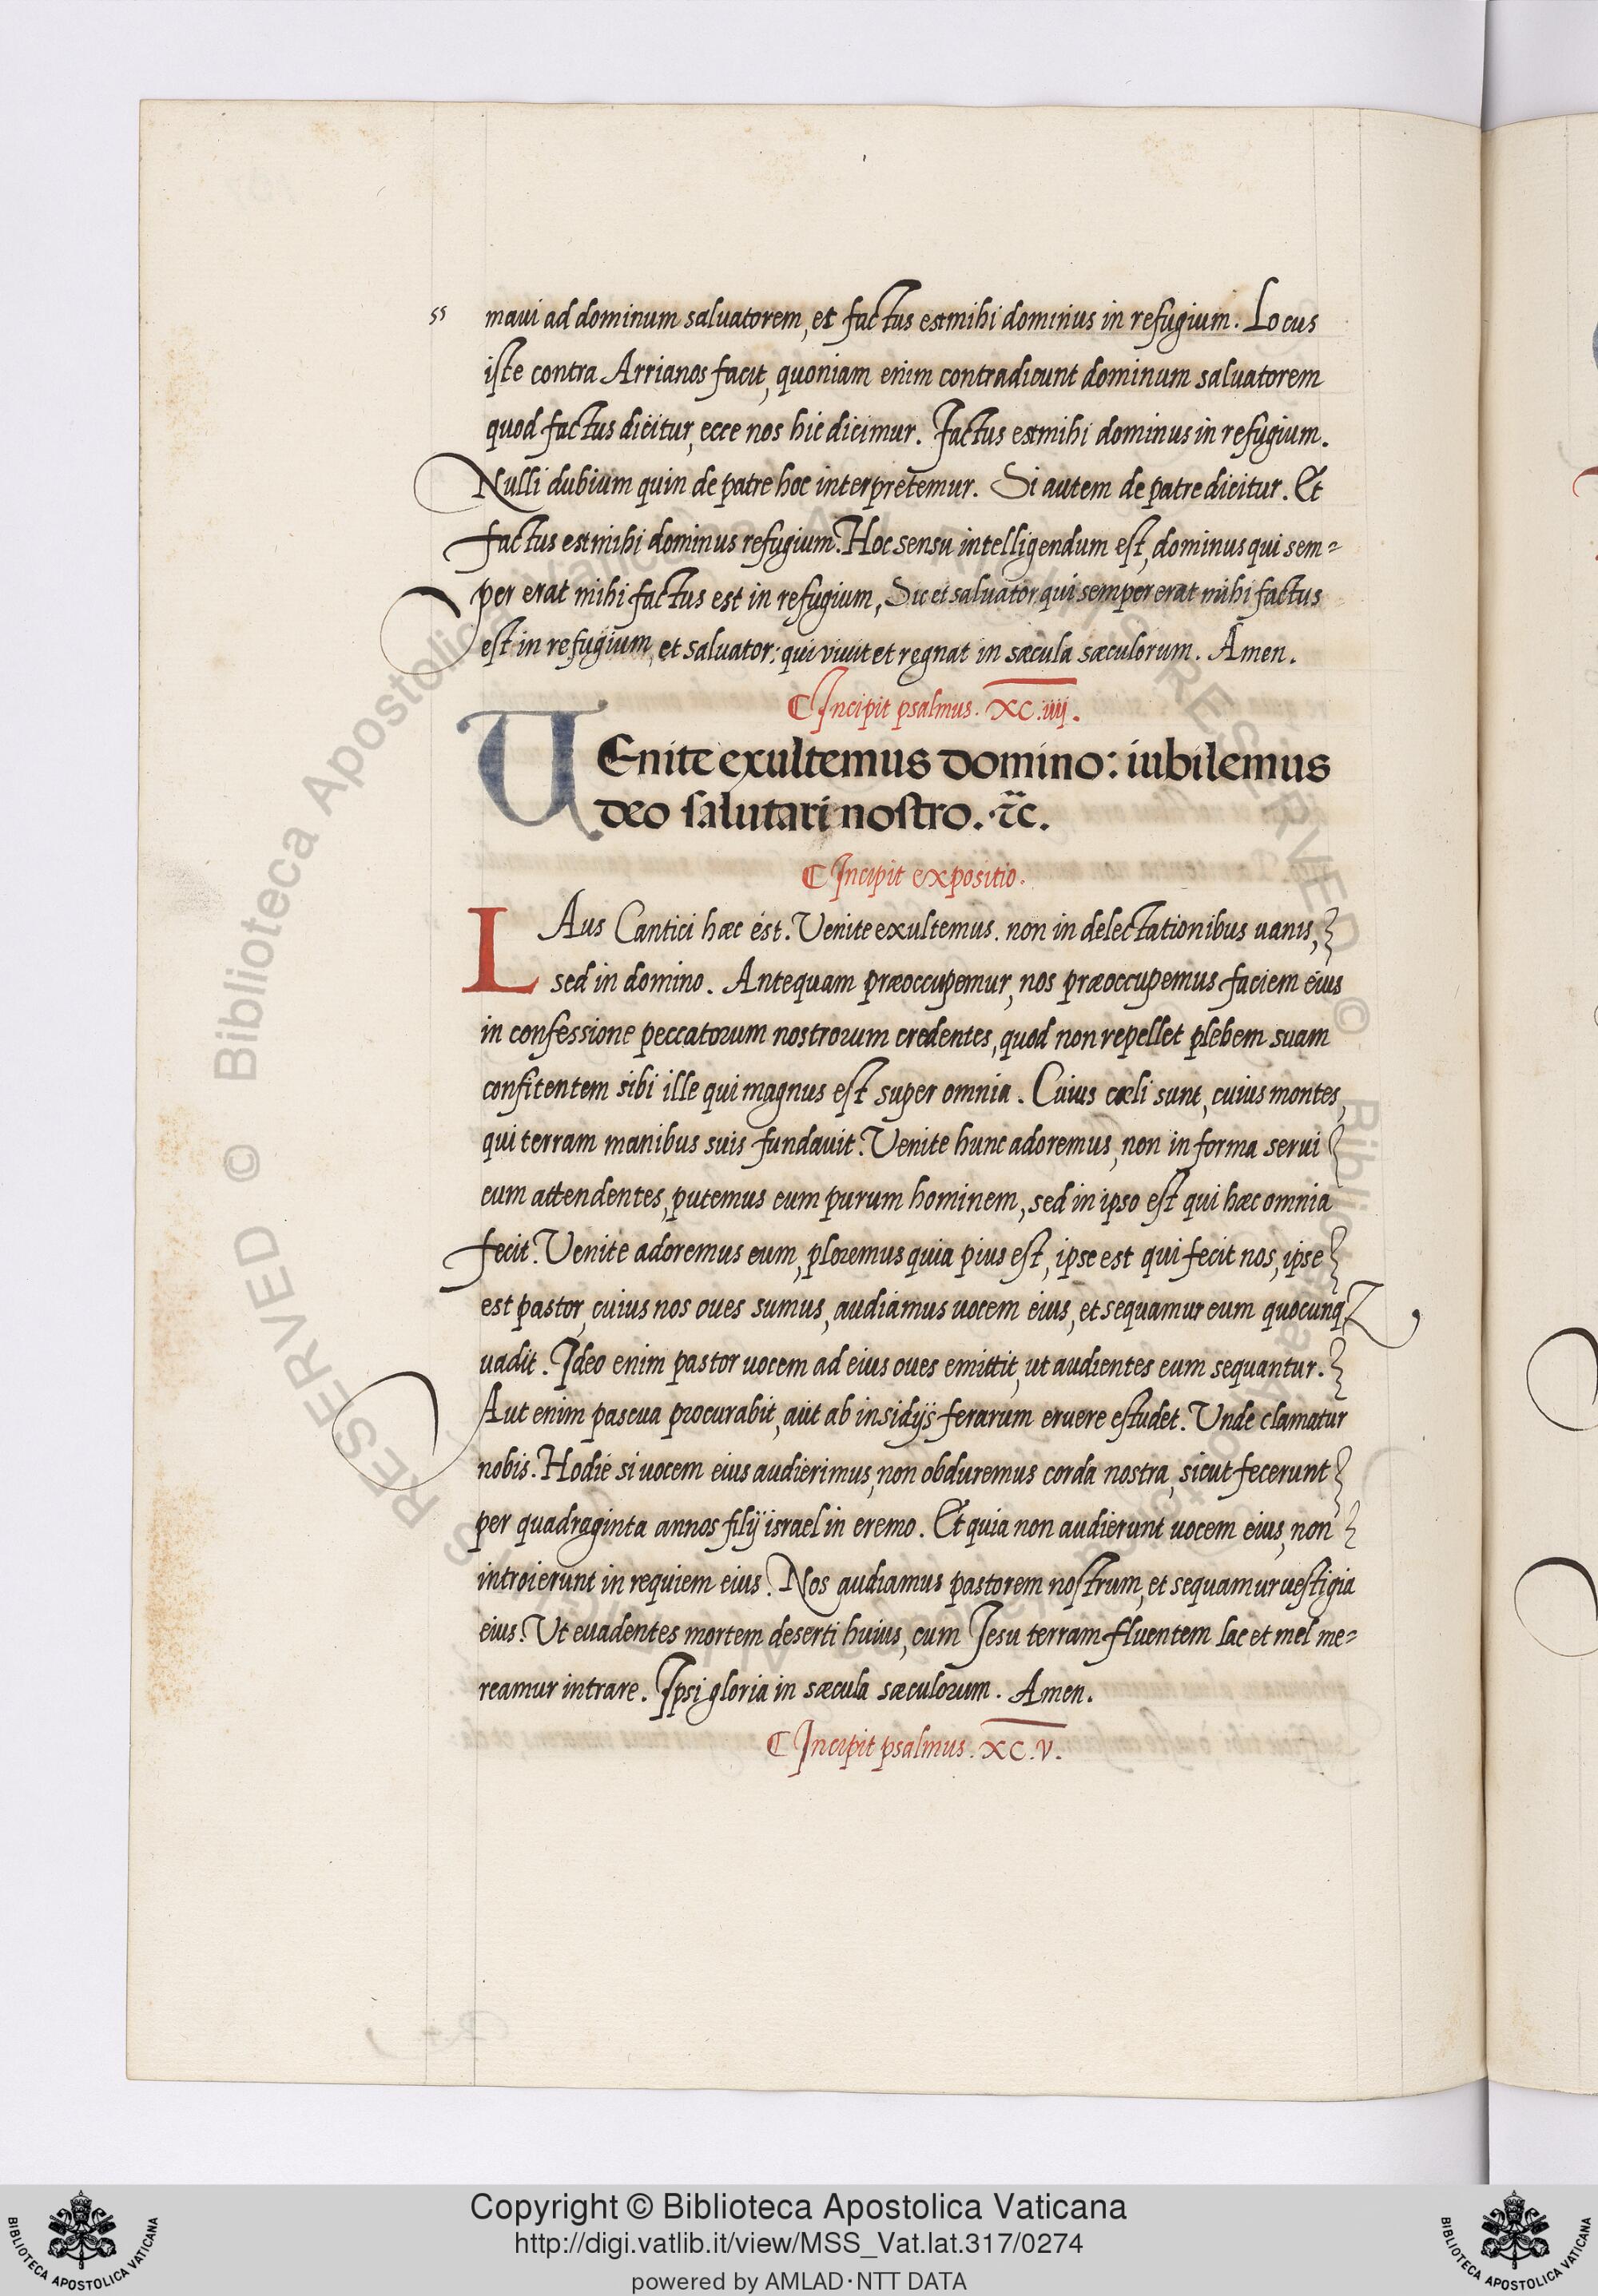 ss maui ad dominum saluatorem, et factus est mihi dominus in refugium. Locus
iste contra Arrianos facit, quoniam enim contradicunt dominum saluatorem
quod factus dicitur, ecce nos hic dicimur. Factus est mihi dominus in refugium.
Nulli dubium quin de patre hoc interpretemur. Si autem de patre dicitur. Et
factus est mihi dominus refugium. Hoc sensu intelligendum est, dominus qui sem=
per erat mihi factus est in refugium, Sic et saluator, qui semper erat mihi factus
est in refugium, et saluator: qui viuit et regnat in sæcula sæculorum. Amen.
Incipit psalmus. XC.iiij.
UEnite exultemus domino: iubilemus
deo salutari nostro. &c.
Incipit expositio.
LAus Cantici hæc est. Venite exultemus. non in delectationibus uanis,
sed in domino. Antequam præoccupemur, nos præoccupemus faciem eius
in confessione peccatorum nostrorum credentes, quod non repellet plebem suam
confitentem sibi ille qui magnus est super omnia. Cuius cæli sunt, cuius montes,
qui terram manibus suis fundauit. Venite hunc adoremus, non in forma serui
eum attendentes, putemus eum purum hominem, sed in ipso est qui hæc omnia
fecit. Venite adoremus eum, ploremus quia pius est, ipse est qui fecit nos, ipse
est pastor, cuius nos oues sumus, audiamus uocem eius, et sequamur eum quocunq;
uadit. Ideo enim pastor uocem ad eius oues emittit, ut audientes eum sequantur.
Aut enim pascua procurabit, aut ab insidijs ferarum eruere estudet. Unde clamatur
nobis. Hodie si uocem eius audierimus, non obduremus corda nostra, sicut fecerunt
per quadraginta annos filij israel in eremo. Et quia non audierunt uocem eius, non
introierunt in requiem eius. Nos audiamus pastorem nostrum, et sequamur uestigia
eius. Ut euadentes mortem deserti huius, cum Jesu terram fluentem lac et mel me=
reamur intrare. Ipsi gloria in sæcula sæculorum. Amen.
Incipit psalmus. XC.v.
Copyright © Biblioteca Apostolica Vaticana
http://digi.vatlib.it/view/MSS_Vat.lat.317/0274
powered by AMLAD·NTT DATA
BIBLIOTECA APOSTOLICA VATICANA
BIBLIOTECA APOSTOLICA VATICANA